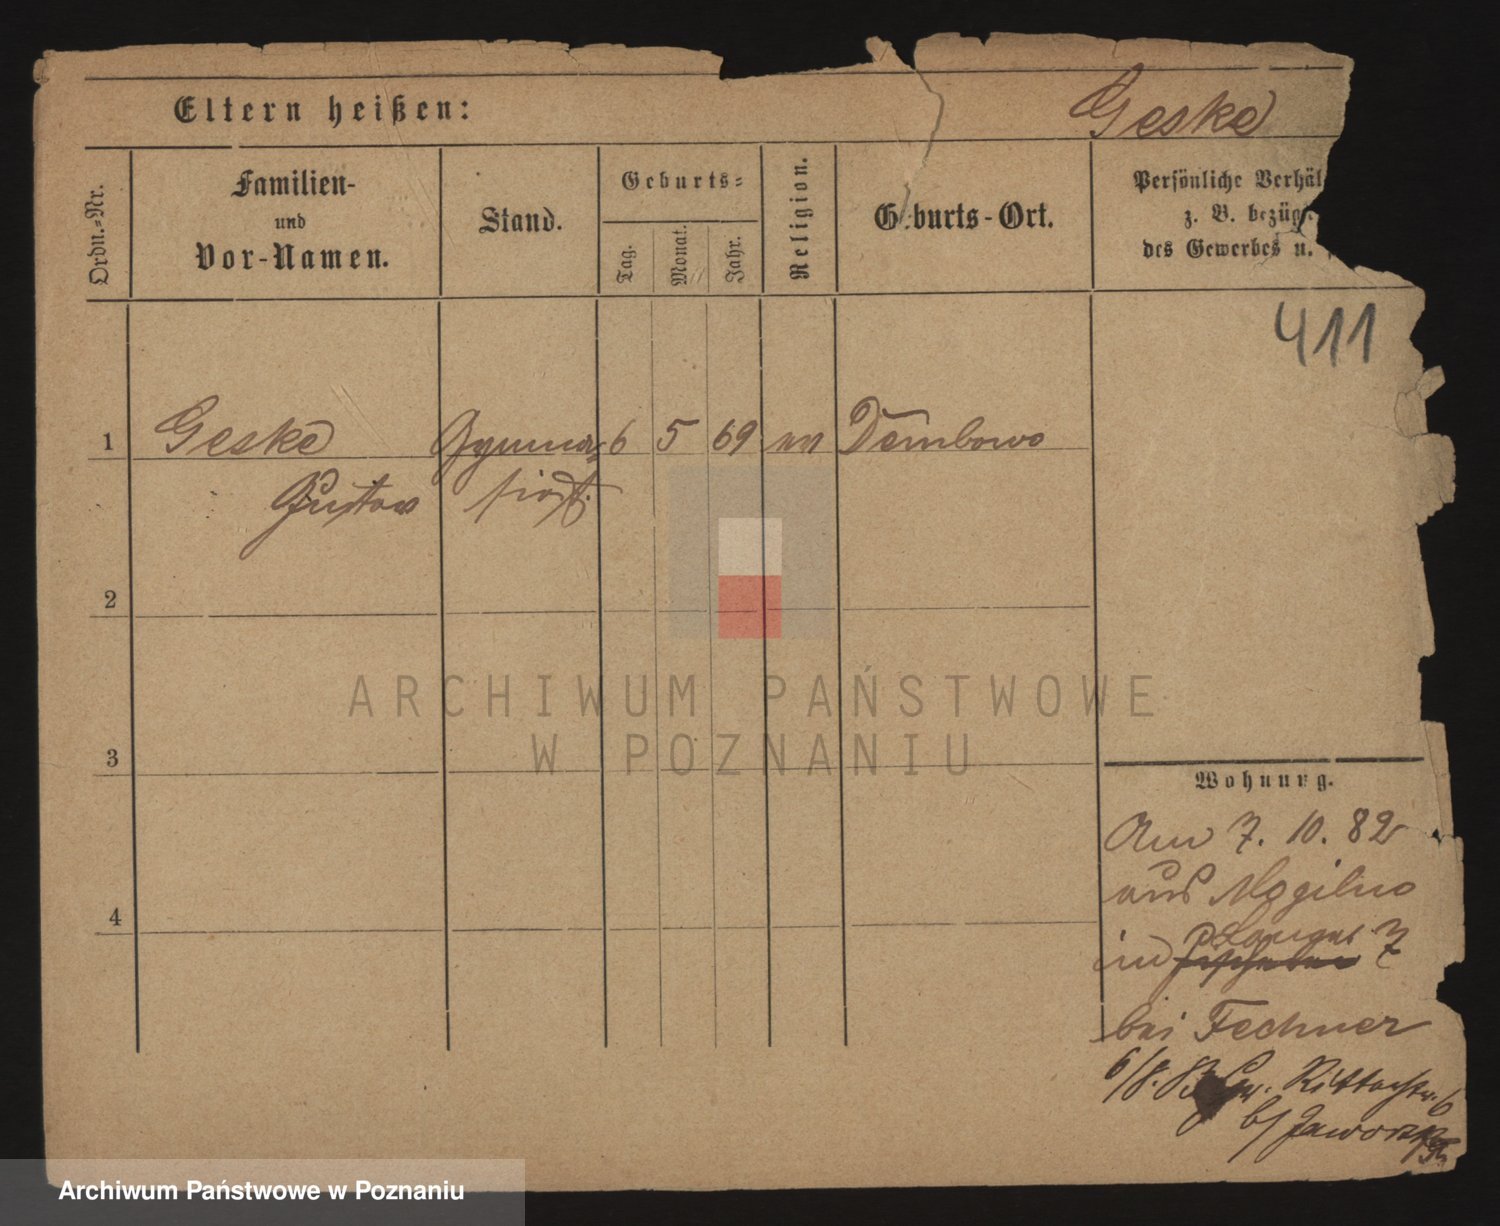 Eltern heißen:
Geske
Ordn.-Nr.
Familien-
und
Vor-Namen.
Stand.
Geburts-
Tag.
Monat.
Jahr.
Religion.
Geburts-Ort.
Persönliche Verhäl
z. B. bezüg
des Gewerbes u.
411
1
Geske
Gymna-
6
5
69
ev
Dembowo
Gustav
siast.
2
3
4
Wohnung.
Am 7. 10. 82
aus Mogilno
in Langest 7
bei Fechner
6/8. 83 Gr. Ritterstr. 6
b/ Jaworski
ARCHIWUM PAŃSTWOWE
W POZNANIU
Archiwum Państwowe w Poznaniu